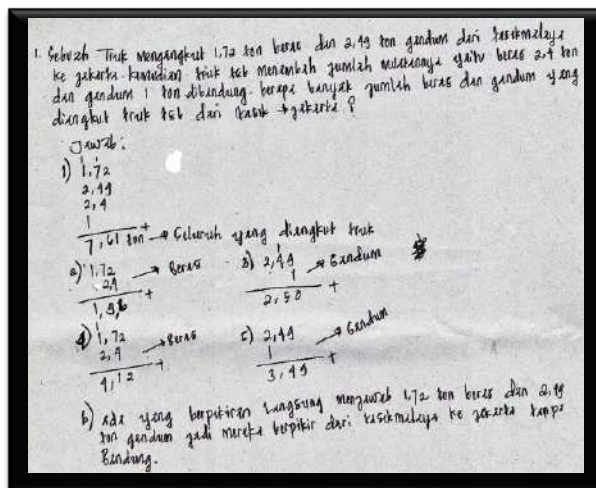 1. Sebuah Truk mengangkut 1,72 ton beras dan 2,49 ton gandum dari tasikmalaya
ke jakarta. kemudian truk tsb menambah jumlah muatannya yaitu beras 2,4 ton
dan gandum 1 ton dibandung. berapa banyak jumlah beras dan gandum yang
diangkut truk tsb dari tasik → jakarta ?
Jawab :
1) 1,72
2,49
2,4
1
+
7,61 ton → Seluruh yang diangkut truk
2) 1,72 → Beras
24
+
1,96
3) 2,49 → Gandum
1
+
2,50
4) 1,72 → Beras
2,4
+
4,12
5) 2,49 → Gandum
1
+
3,49
6) ada yang berpikiran langsung menjawab 1,72 ton beras dan 2,49
ton gandum jadi mereka berpikir dari tasikmalaya ke jakarta tanpa
Bandung.